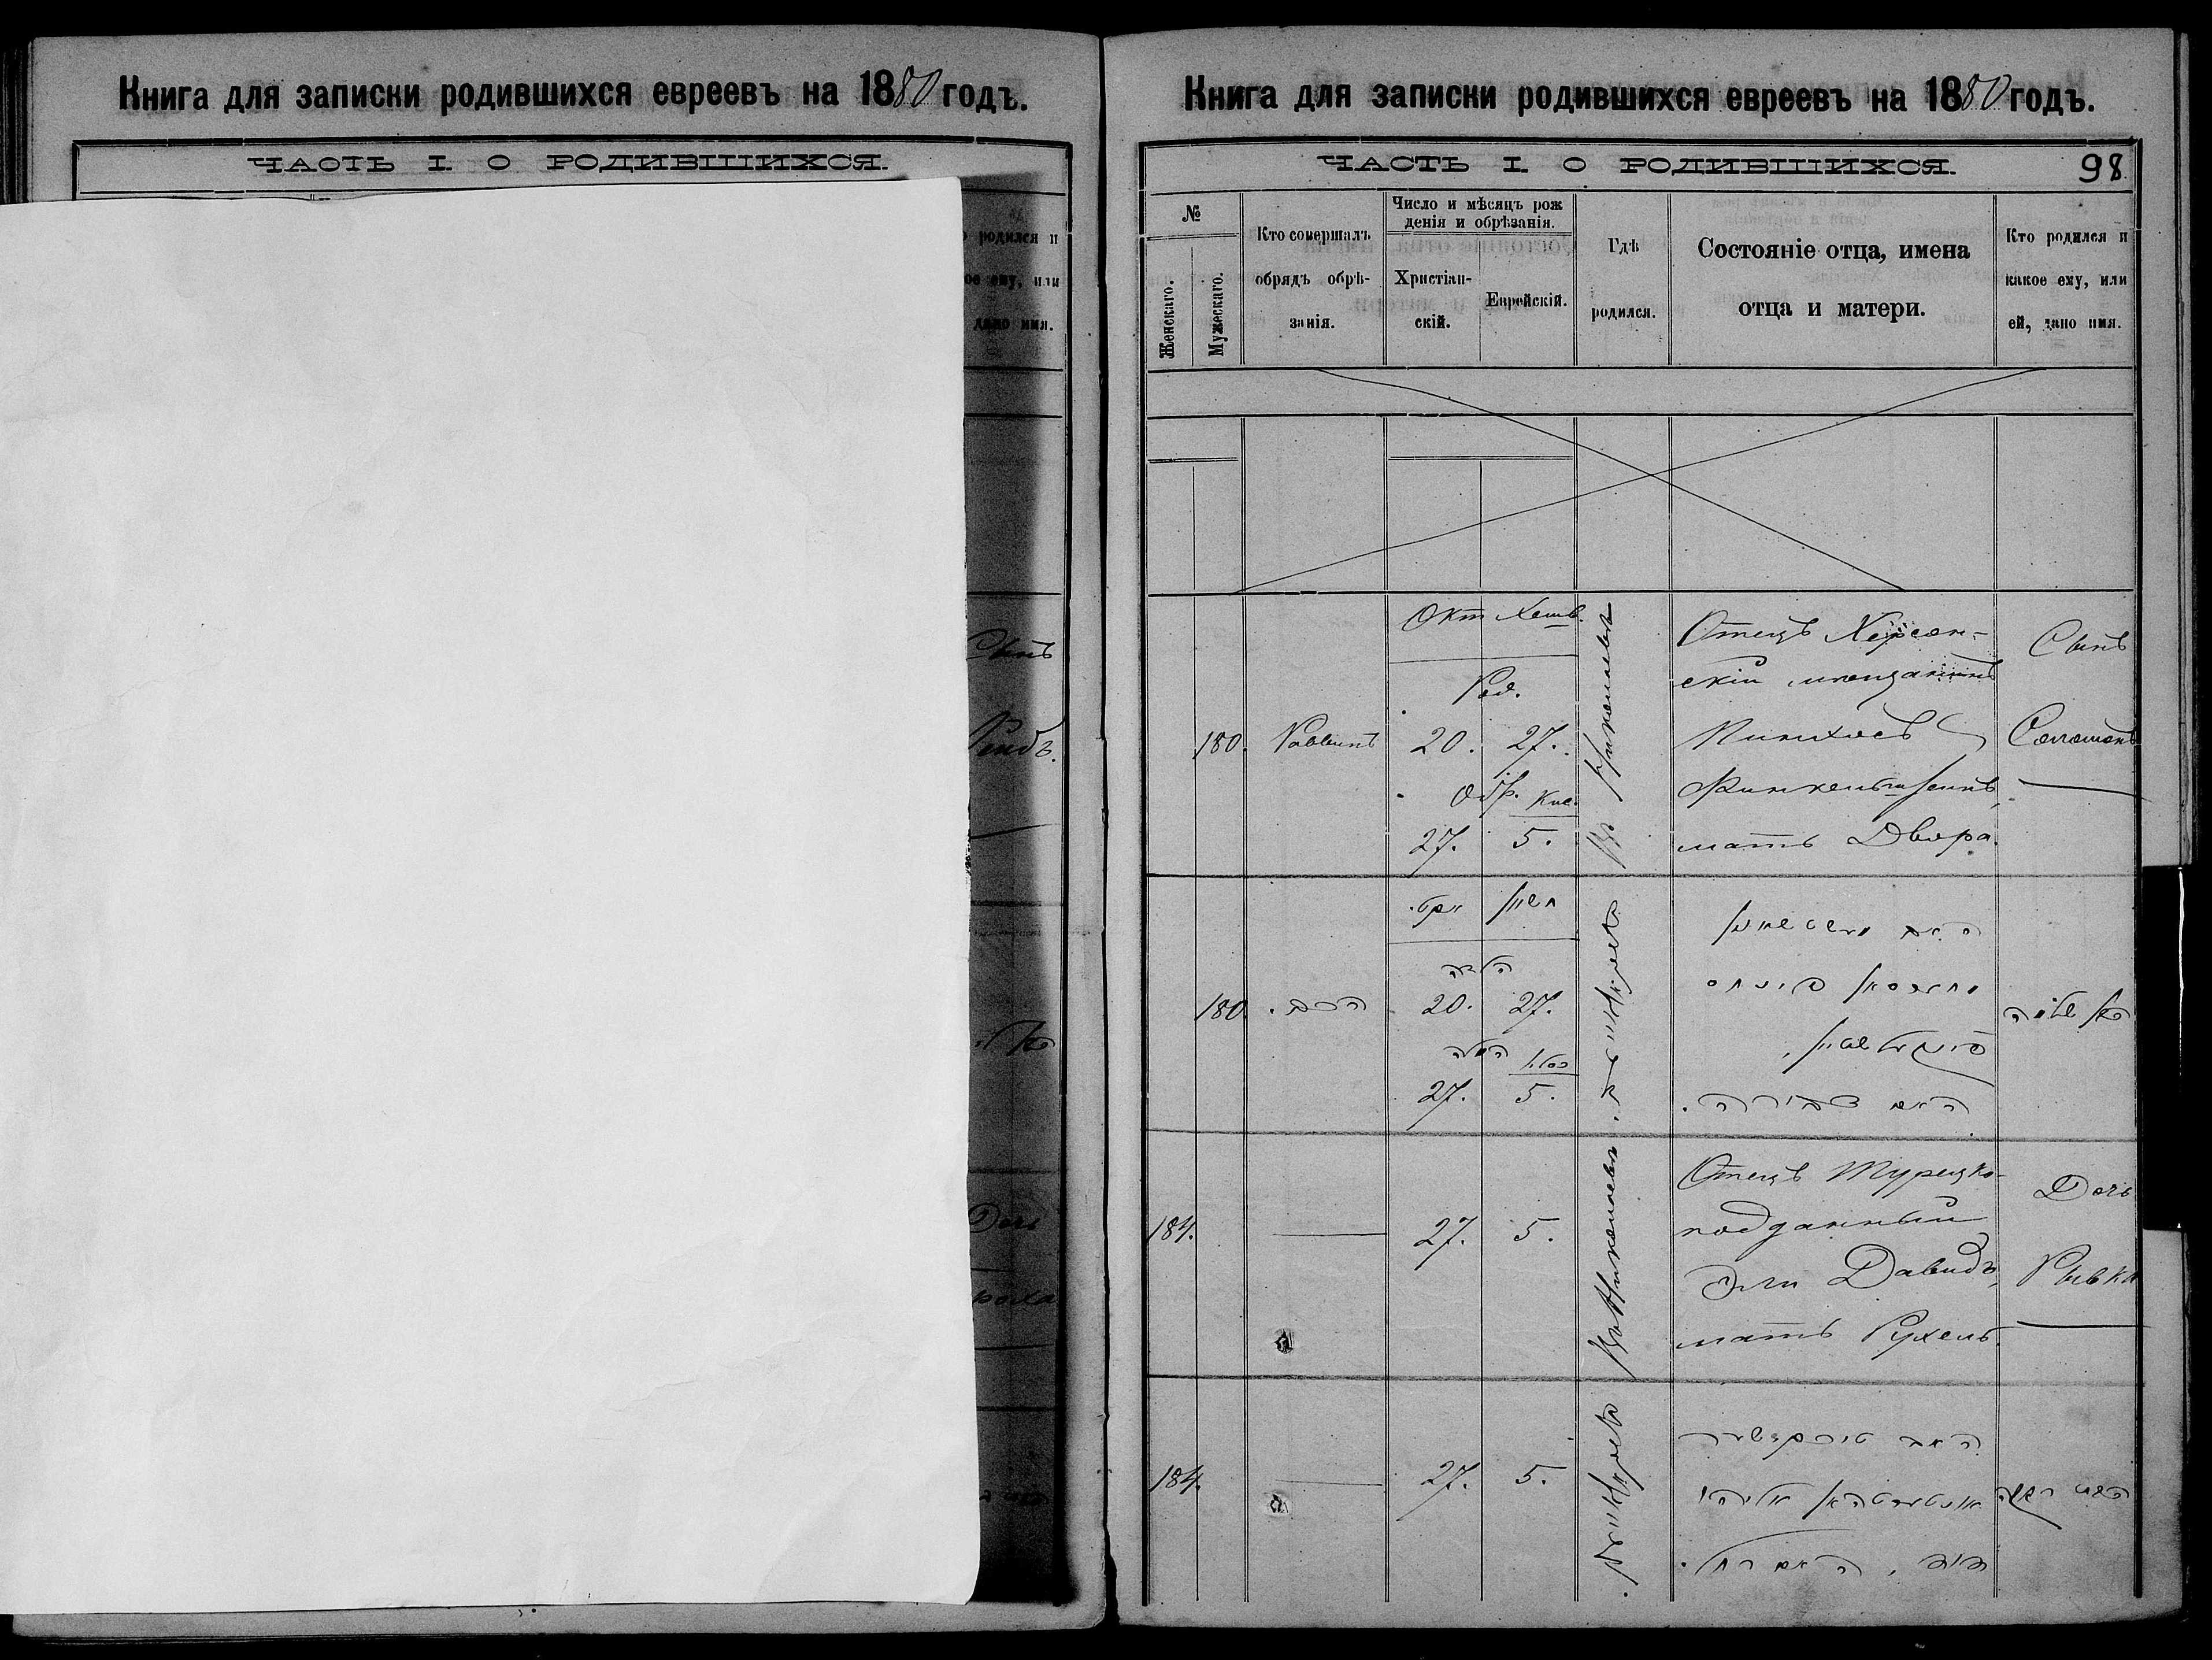 Книга для записки родившихся евреевъ на 1880 годъ.
ЧАСТЬ I. О РОДИВШИХСЯ.
родился и
ое ему, или
дано имя.
Сынъ
Дочь
Книга для записки родившихся евреевъ на 1880 годъ.
ЧАСТЬ I. О РОДИВШИХСЯ.
98
№
Женскаго.
Мужескаго.
Кто совершалъ
обрядъ обрѣ-
занія.
Число и мѣсяцъ рож
денія и обрѣзанія.
Христіан-
скій.
Еврейскій.
Гдѣ
родился.
Состояніе отца, имена
отца и матери.
Кто родился и
какое ему, или
ей, дано имя.
180.
Раввинъ
Окт Хешв.
Род.
20. 27.
Обр. Кис.
27. 5.
Въ Николаевѣ
Отецъ Херсон-
скій мѣщанинъ
Пинхосъ
Финкельштейнъ,
мать Двора.
Сынъ
Соломонъ
180.
הרב.
אקט. חשון
הלידה
20. 27.
המילה כסלו
27. 5.
האב
פינחס
פינקלשטיין,
האם דבורה.
בן שלמה
184.
27. 5.
Въ Николаевѣ
Отецъ Турецко-
подданный
Эли Давидъ,
мать Рухель.
Дочь
Рывка
184.
27. 5.
האב
אליהו
דוד, האם רחל.
בת רבקה